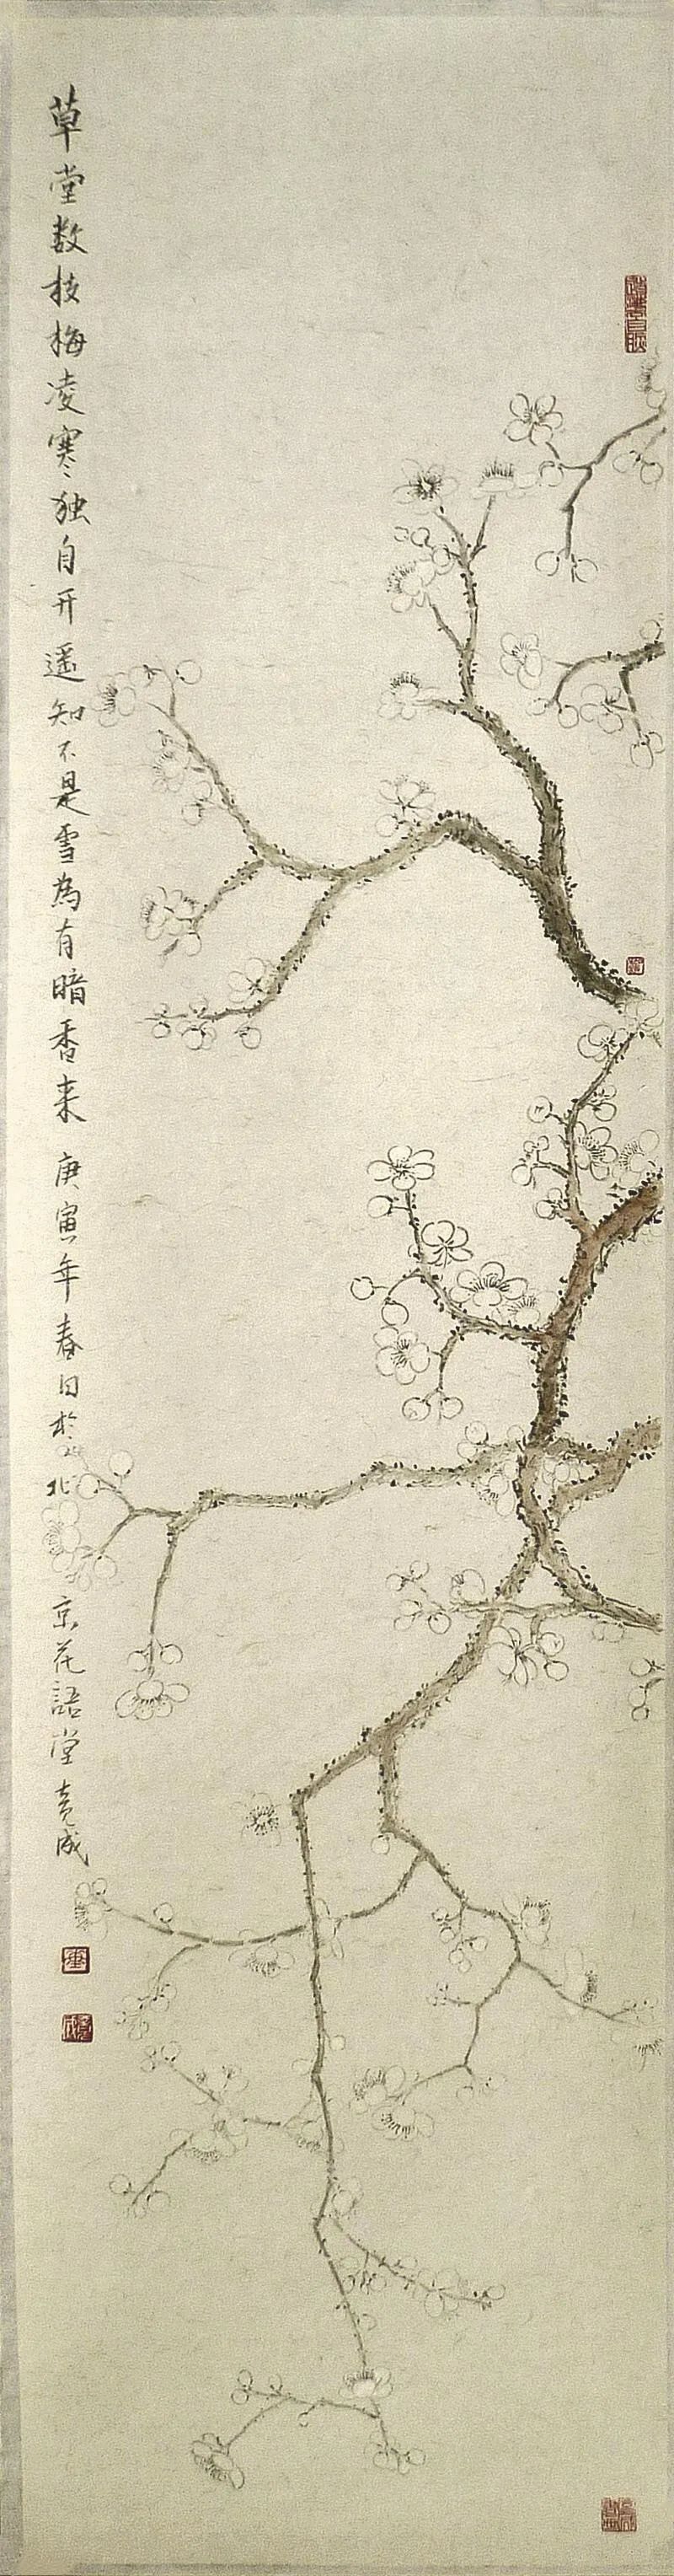 草堂数枝梅凌寒独自开遥知不是雪為有暗香来 庚寅年春日於北京花語堂 竟成